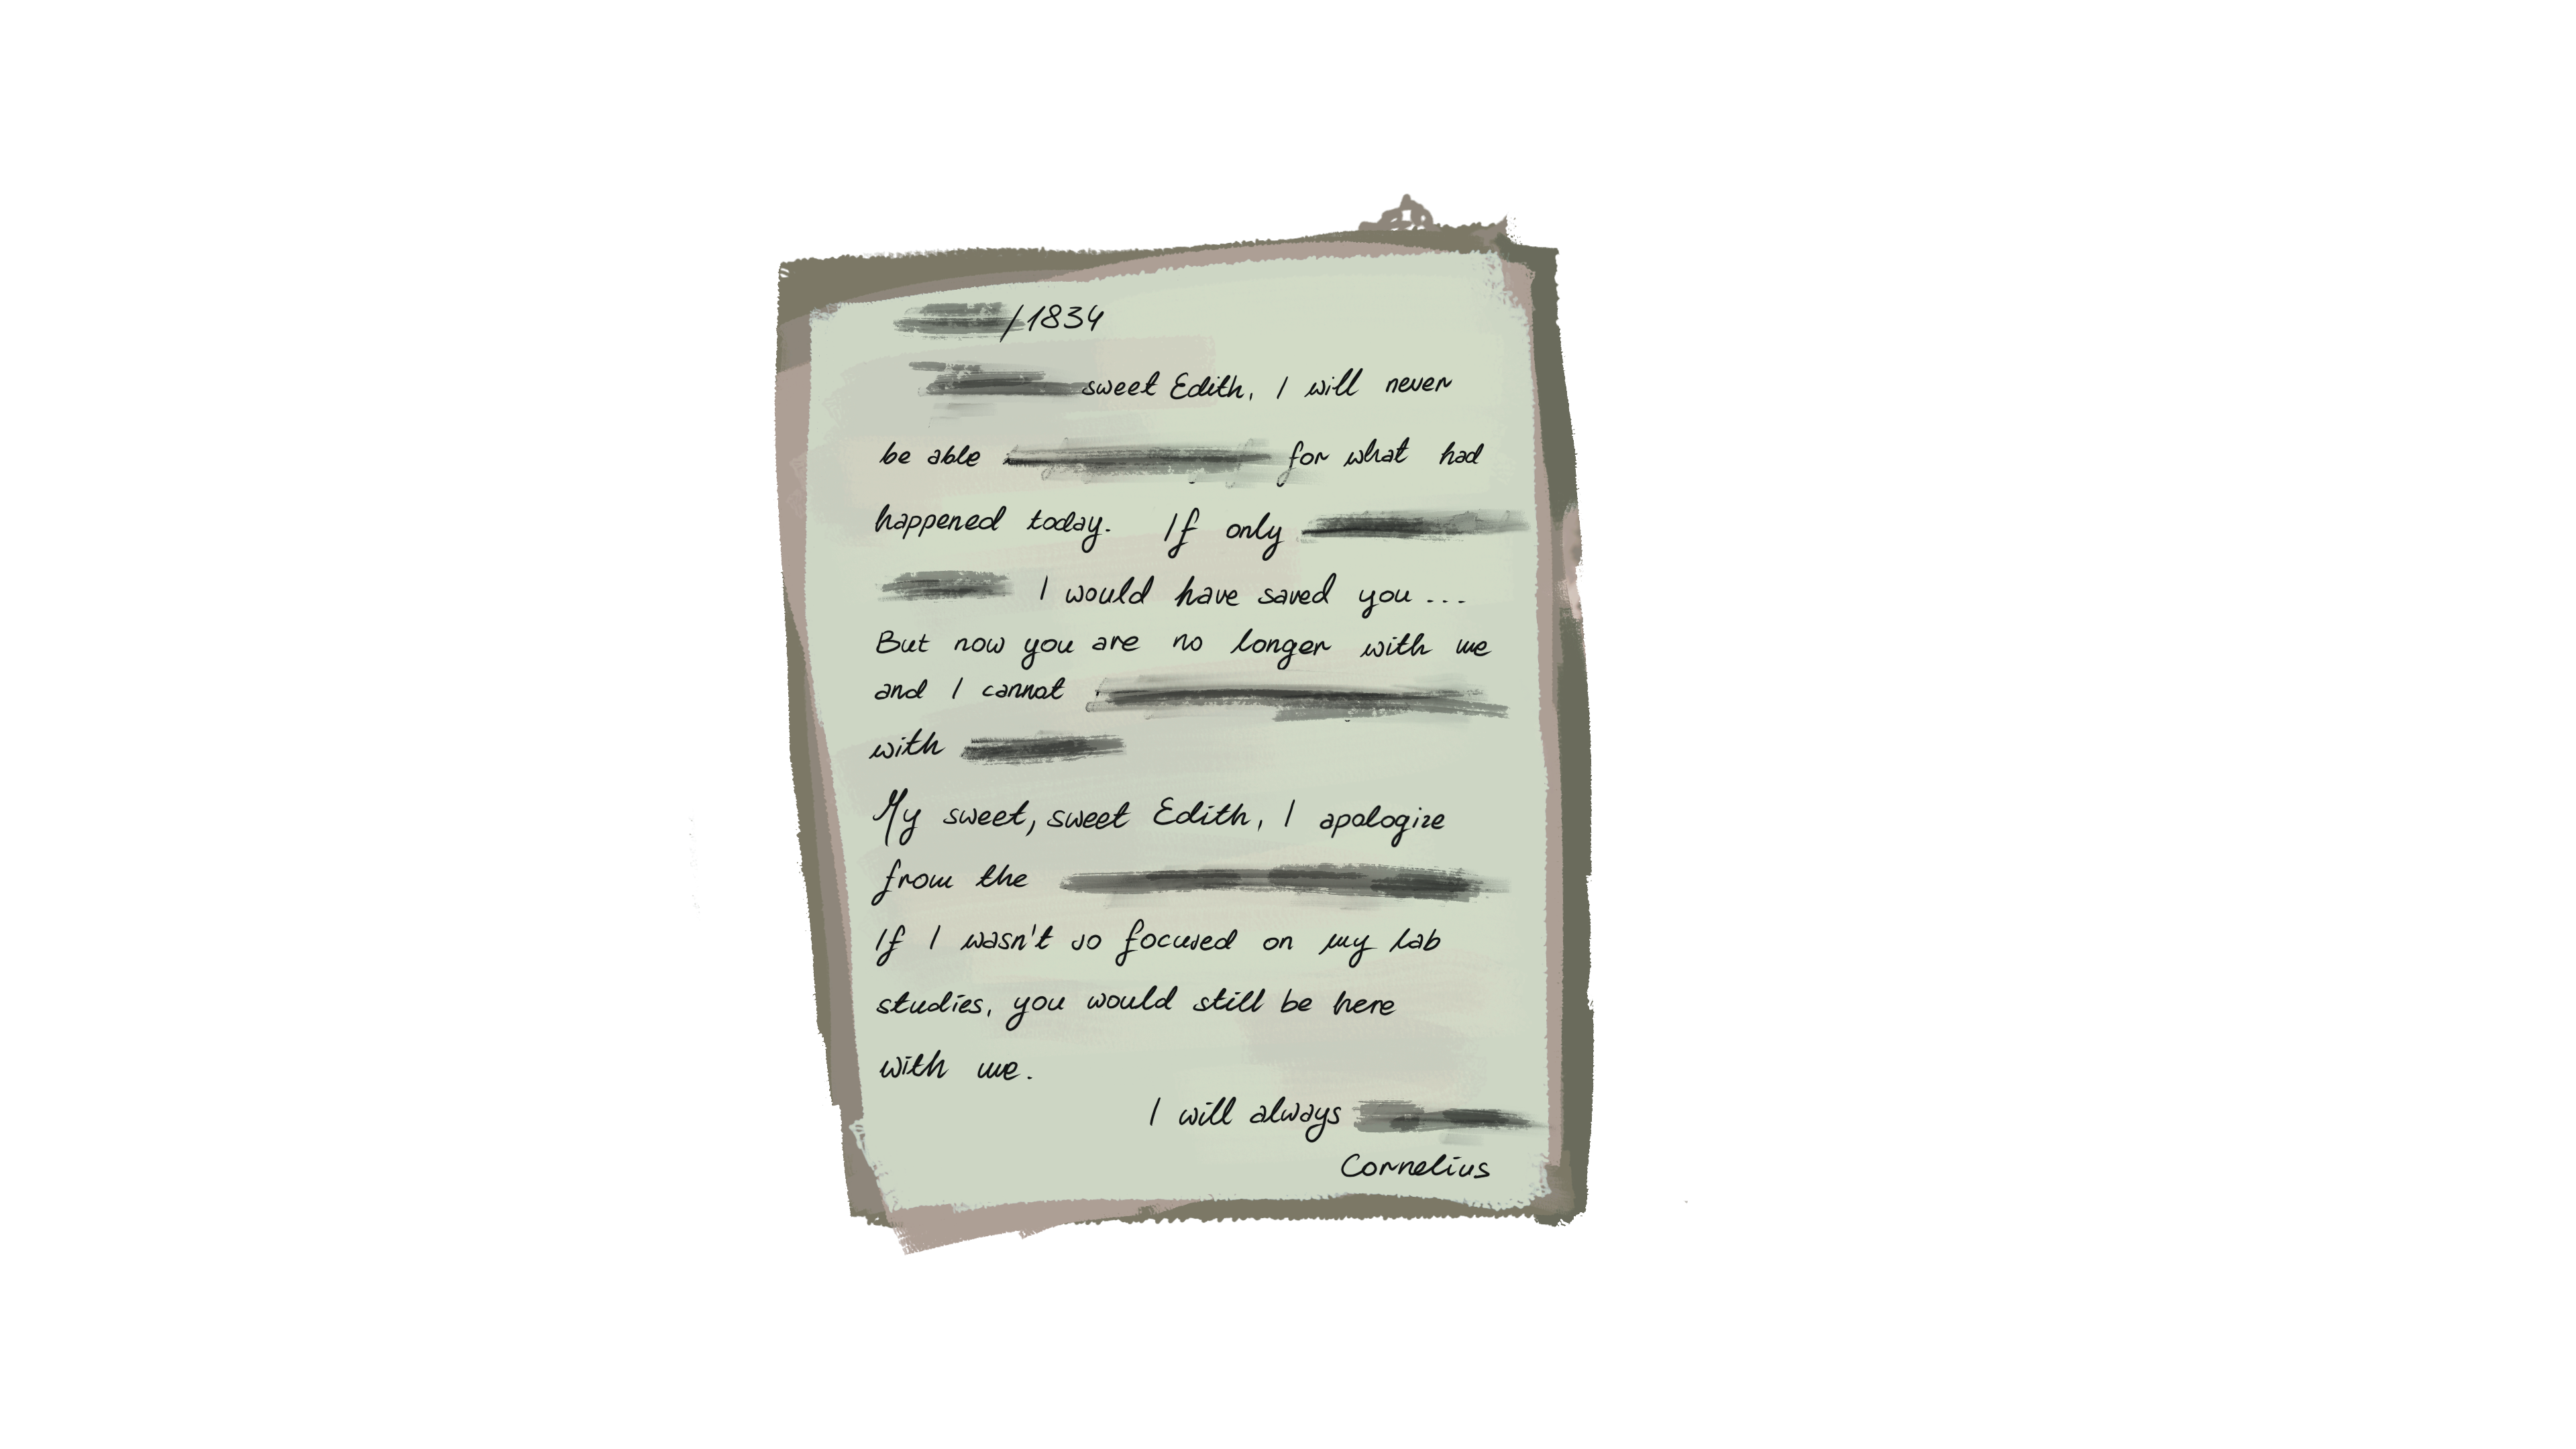 /1834
sweet Edith, I will never
be able for what had
happened today. If only
I would have saved you ...
But now you are no longer with me
and I cannot
with
My sweet, sweet Edith, I apologize
from the
If I wasn't so focused on my lab
studies, you would still be here
with me.
I will always
Cornelius